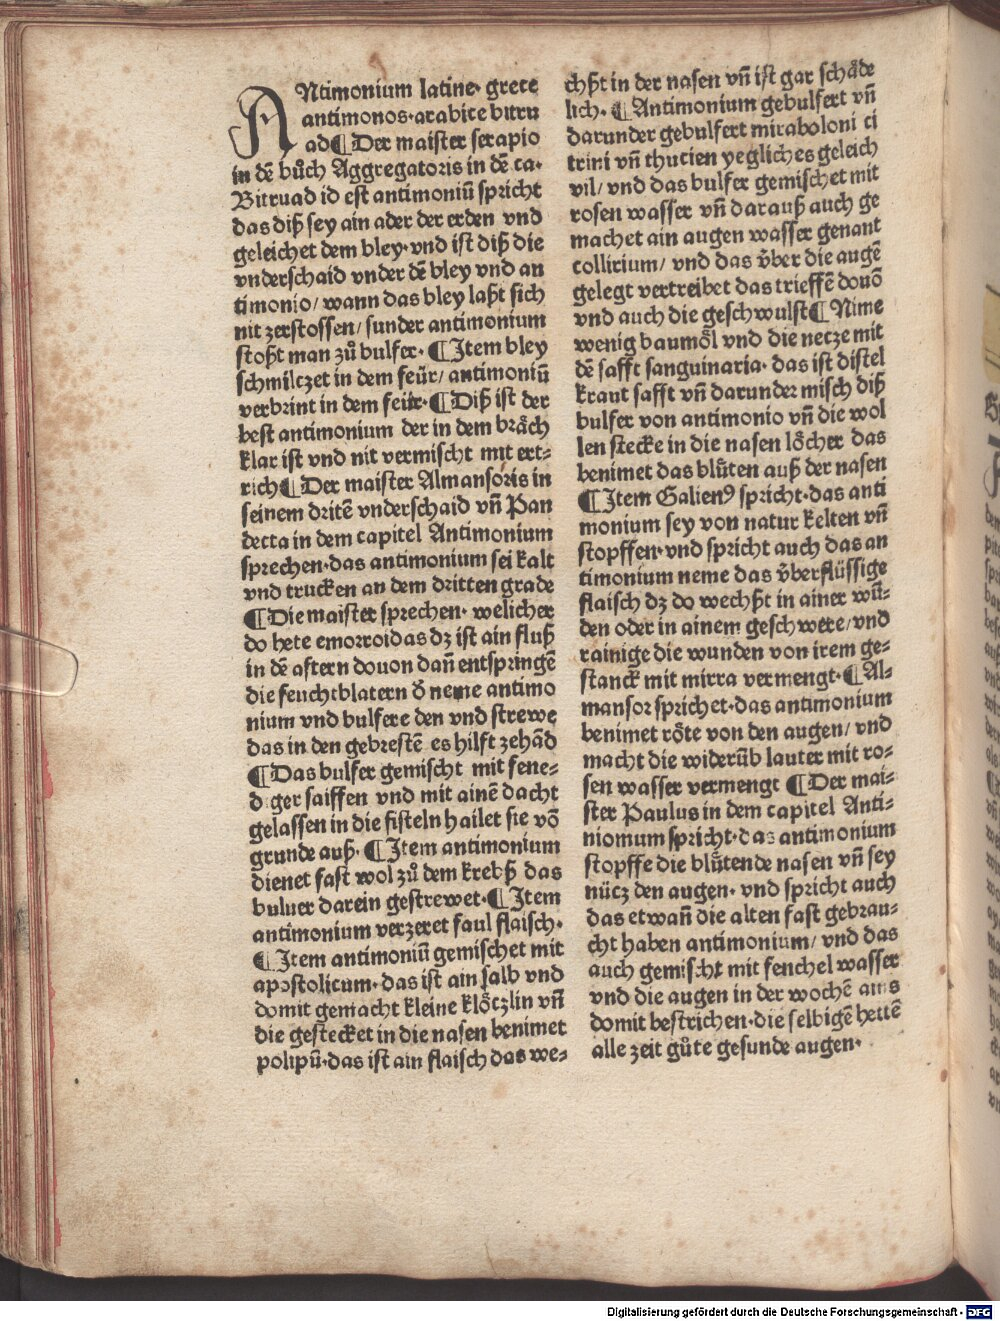 ANtimonium latine· grece
antimonos·arabice bitru
ad¶Der maister serapio
in dē bůch Aggregatoris in dē ca·
Bitruad id est antimoniū spricht
das diß sey ain ader der erden vnd
geleichet dem bley·vnd ist diß die
vnderschaid vnder dē bley vnd an
timonio/ wann das bley laßt sich
nit zerstossen/ sunder antimonium
stoßt man zů bulfer· ¶Item bley
schmilczet in dem feür/ antimoniū
verbrint in dem feür·¶Diß ist der
best antimonium der in dem brǎch
klar ist vnd nit vermischt mit ert⸗
rich¶Der maister Almansoris in
seinem dritē vnderschaid vn̄ Pan
decta in dem capitel Antimonium
sprechen·das antimonium sei kalt
vnd trucken an dem dritten grade
¶Die maister sprechen· welicher
do hete emorroidas dz ist ain fluß
in dē aftern douon dan̄ entspringē
die feuchtblatern d̄ neme antimo
nium vnd bulfere den vnd strewe
das in den gebrestē es hilft zehād
¶Das bulfer gemischt mit fene⸗
diger saiffen vnd mit ainē dacht
gelassen in die fisteln hailet sie vō
grunde auß· ¶Item antimonium
dienet fast wol zů dem krebß das
buluer darein gestrewet·¶Item
antimonium verzeret faul flaisch·
¶Item antimoniū gemischet mit
apostolicum·das ist ain salb vnd
domit gemacht kleine klötzlin vn̄
die gestecket in die nasen benimet
polipū·das ist ain flaisch das we⸗
chßt in der nasen vn̄ ist gar schäde
lich· ¶Antimonium gebulfert vn̄
darunder gebulfert miraboloni ci
trini vn̄ thucien yegliches geleich
vil/ vnd das bulfer gemischet mit
rosen wasser vn̄ darauß auch ge
machet ain augen wasser genant
collirium/ vnd das v̈ber die augē
gelegt vertreibet das trieffē douō
vnd auch die geschwulst¶Nime
wenig baumöl vnd die necze mit
dē safft sanguinaria· das ist distel
kraut safft vn̄ darunder misch diß
bulfer von antimonio vn̄ die wol
len stecke in die nasen löcher das
benimet das blüten auß der nasen
¶Item Galienꝰ spricht·das anti
monium sey von natur kelten vn̄
stopffen·vnd spricht auch das an
timonium neme das v̈berflüssige
flaisch dz do wechßt in ainer wū⸗
den oder in ainem geschwere/vnd
rainige die wunden von irem ge⸗
stanck mit mirra vermengt·¶Al⸗
mansor sprichet·das antimonium
benimet röte von den augen/ vnd
macht die widerūb lauter mit ro⸗
sen wasser vermengt ¶Der mai⸗
ster Paulus in dem capitel Anti⸗
niomum spricht·das antimonium
stopffe die blütende nasen vn̄ sey
nücz den augen· vnd spricht auch
das etwan̄ die alten fast gebrau⸗
cht haben antimonium/ vnd das
auch gemischt mit fenchel wasser
vnd die augen in der wochē ains
domit bestrichen·die selbigē hettē
alle zeit gůte gesunde augen·
Digitalisierung gefördert durch die Deutsche Forschungsgemeinschaft - DFG